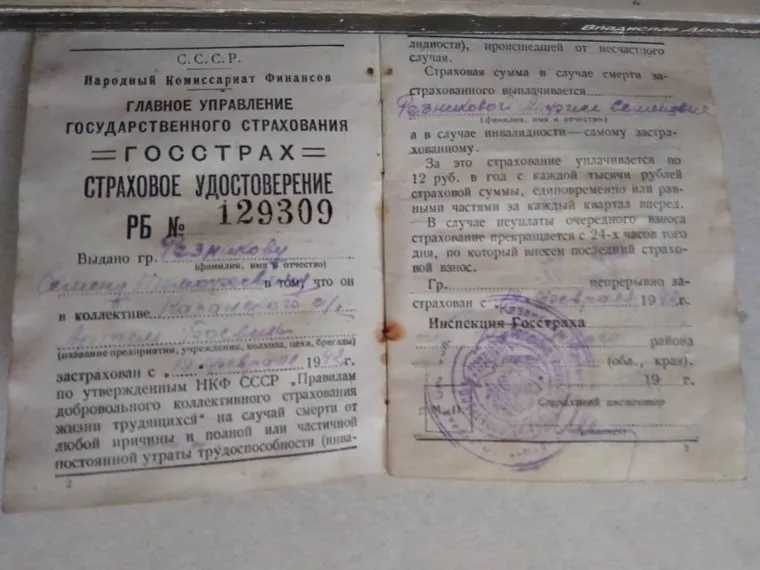 Владислав
С.С.С.Р.
Народный Комиссариат Финансов
ГЛАВНОЕ УПРАВЛЕНИЕ
ГОСУДАРСТВЕННОГО СТРАХОВАНИЯ
ГОССТРАХ
СТРАХОВОЕ УДОСТОВЕРЕНИЕ
РБ № 129309
Выдано гр. Резникову
(фамилия, имя и отчество)
Семену в том, что он
в коллективе Казанского с/с
(название предприятия, учреждения, колхоза, цеха, бригады)
застрахован с 19 февраля 1942 г.
по утвержденным НКФ СССР „Правилам
добровольного коллективного страхования
жизни трудящихся" на случай смерти от
любой причины и полной или частичной
постоянной утраты трудоспособности (инва-
2
лидности), происшедшей от несчастного
случая.
Страховая сумма в случае смерти за-
страхованного выплачивается
Резниковой Семеновне
(фамилия, имя и отчество)
а в случае инвалидности—самому застра-
хованному.
За это страхование уплачивается по
12 руб. в год с каждой тысячи рублей
страховой суммы, единовременно или рав-
ными частями за каждый квартал вперед.
В случае неуплаты очередного взноса
страхование прекращается с 24-х часов того
дня, по который внесен последний страхо-
вой взнос.
Гр. непрерывно за-
страхован с февраля 194 г.
Инспекция Госстраха
района
(обл., края).
19 г.
М. П. Страховой инспектор
3